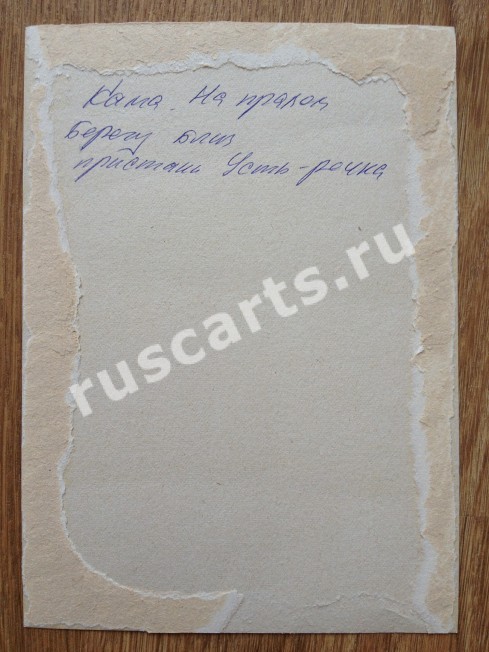 Кама. На правом
берегу близ
пристани Усть-речка
ruscarts.ru